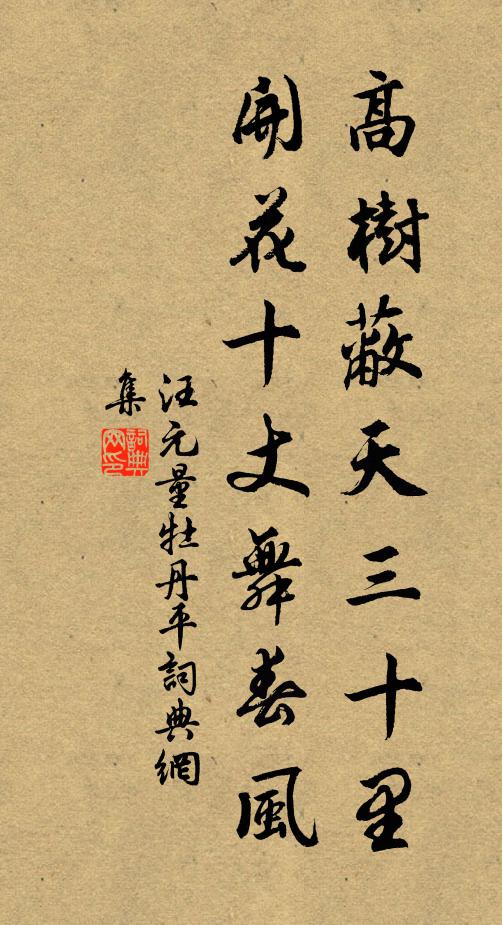 高樹蔽天三十里
開花十丈舞春風
汪元量牡丹平詞典網
集
詞典網印